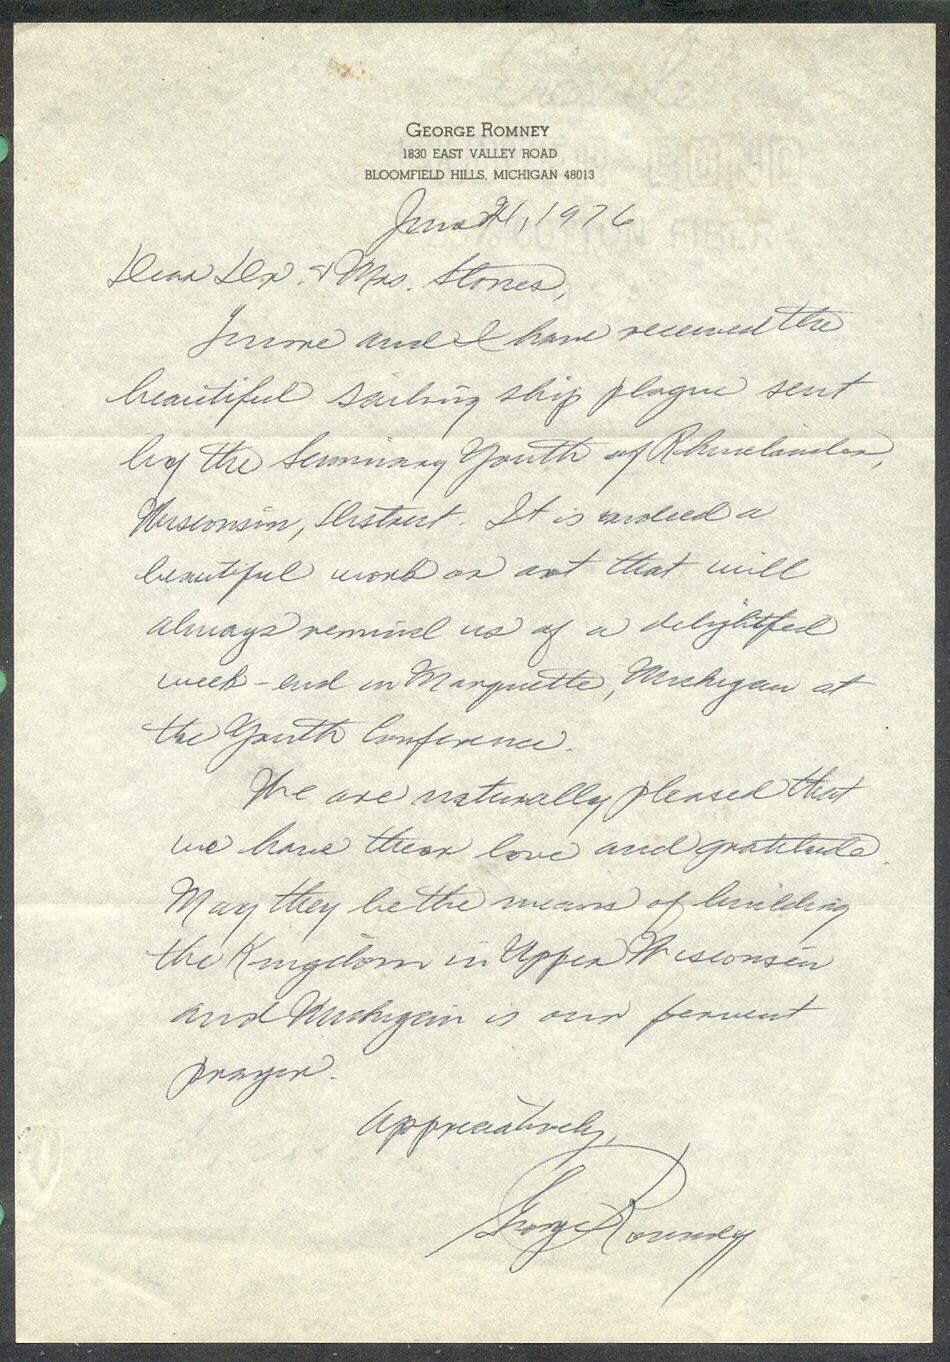 GEORGE ROMNEY
1830 EAST VALLEY ROAD
BLOOMFIELD HILLS, MICHIGAN 48013
June 21, 1976
Dear Dr. & Mrs. Stones,
and I have received the
beautiful sailing ship plaque sent
by the Seminary Youth of Rhinelander,
Wisconsin, District. It is indeed a
beautiful work as art that will
always remind us of a delightful
week-end in Marquette, Michigan at
the Youth Conference.
We are naturally pleased that
we have their love and gratitude.
May they be the means of building
the Kingdom in Upper Wisconsin
and Michigan is our fervent
prayer.
Appreciatively,
George Romney